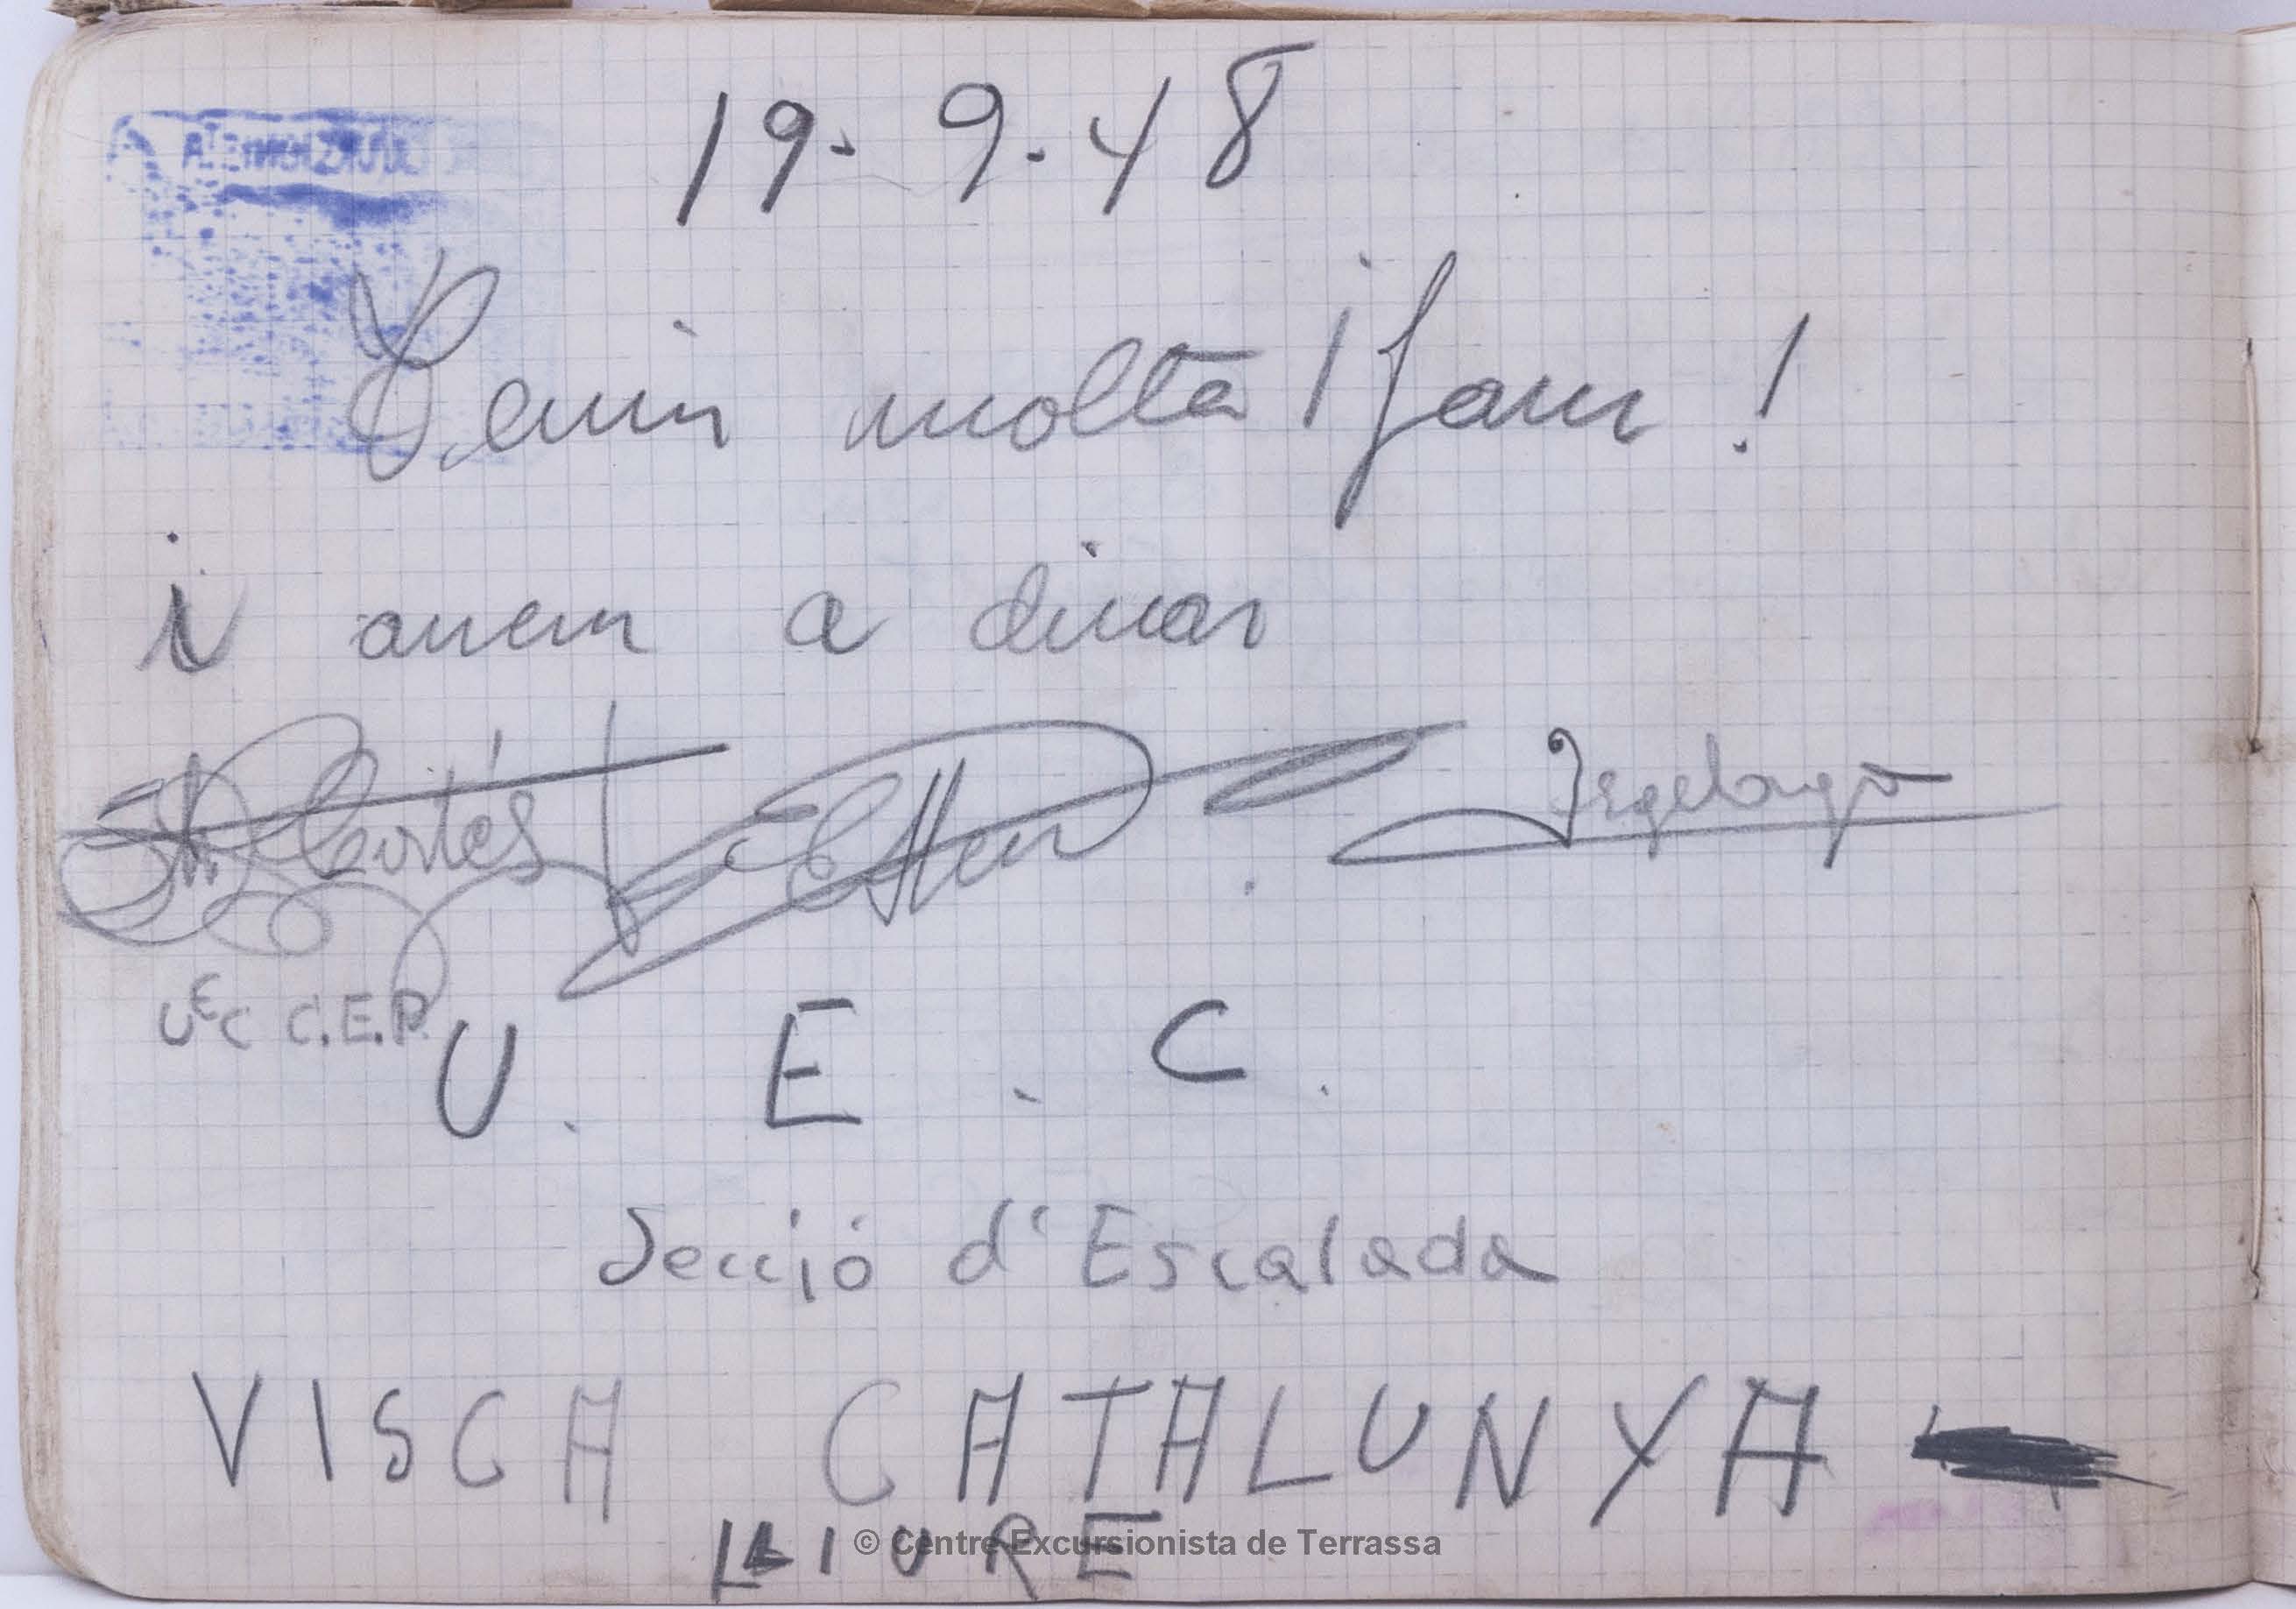 19-9-48
Tenim molta ¡fam!
i anem a dinar
Cortés
UEC C.E.P.
U. E. C.
Secció d'Escalada
VISCA CATALUNYA
LLIURE
© Centre Excursionista de Terrassa